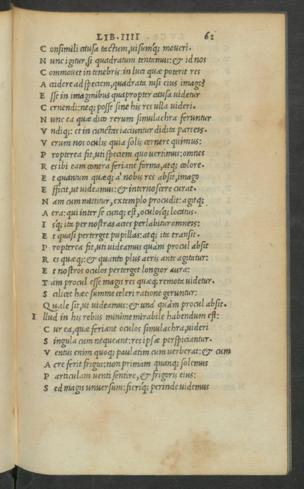 LIB. IIII 62
C onsimili causa tactum, uisumq; moueri.
N unc igitur, si quadratum tentamus: et id nos
C ommouet in tenebris: in luci quæ poterit res
A ccidere ad speciem, quadrata nisi eius imago?
E sse in imaginibus quapropter causa uidetur
C ernendi: neq; posse sine his res ulla uideri.
N unc ea quæ dico rerum simulachra feruntur
V ndiq; et in cunctas iaciuntur didita parteis.
V erum nos oculis quia solis cernere quimus:
P ropterea fit, uti speciem quo uertimus: omnes
R es ibi eam contra feriant forma, atq; colore.
E t quantum quæq; a' nobis res absit, imago
E fficit, ut uideamus: et internoscere curat.
N am cum mittitur, extemplo procudit: agitq;
A era: qui inter se cunq; est, oculosq; locatus.
I sq; ita per nostras acies perlabitur omneis:
E t quasi perterget pupillas: atq; ita transit.
P ropterea fit, uti uideamus quàm procul absit
R es quæq;: et quanto plus aeris ante agitatur:
E t nostros oculos perterget longior aura:
T am procul esse magis res quæq; remota uidetur.
S cilicet hæc summe celeri ratione geruntur:
Q uale sit, ut uideamus: et unà quàm procul absit.
I llud in his rebus minime mirabile habendum est:
C ur ea, quæ feriant oculos simulachra, uideri
S ingula cum nequeant: res ipsæ perspiciantur.
V entus enim quoq; paulatim cum uerberat: et cum
A cre ferit frigus: non primam quamq; solemus
P articulam uenti sentire, et frigoris eius:
S ed magis uniuersum: fieriq; perinde uidemus